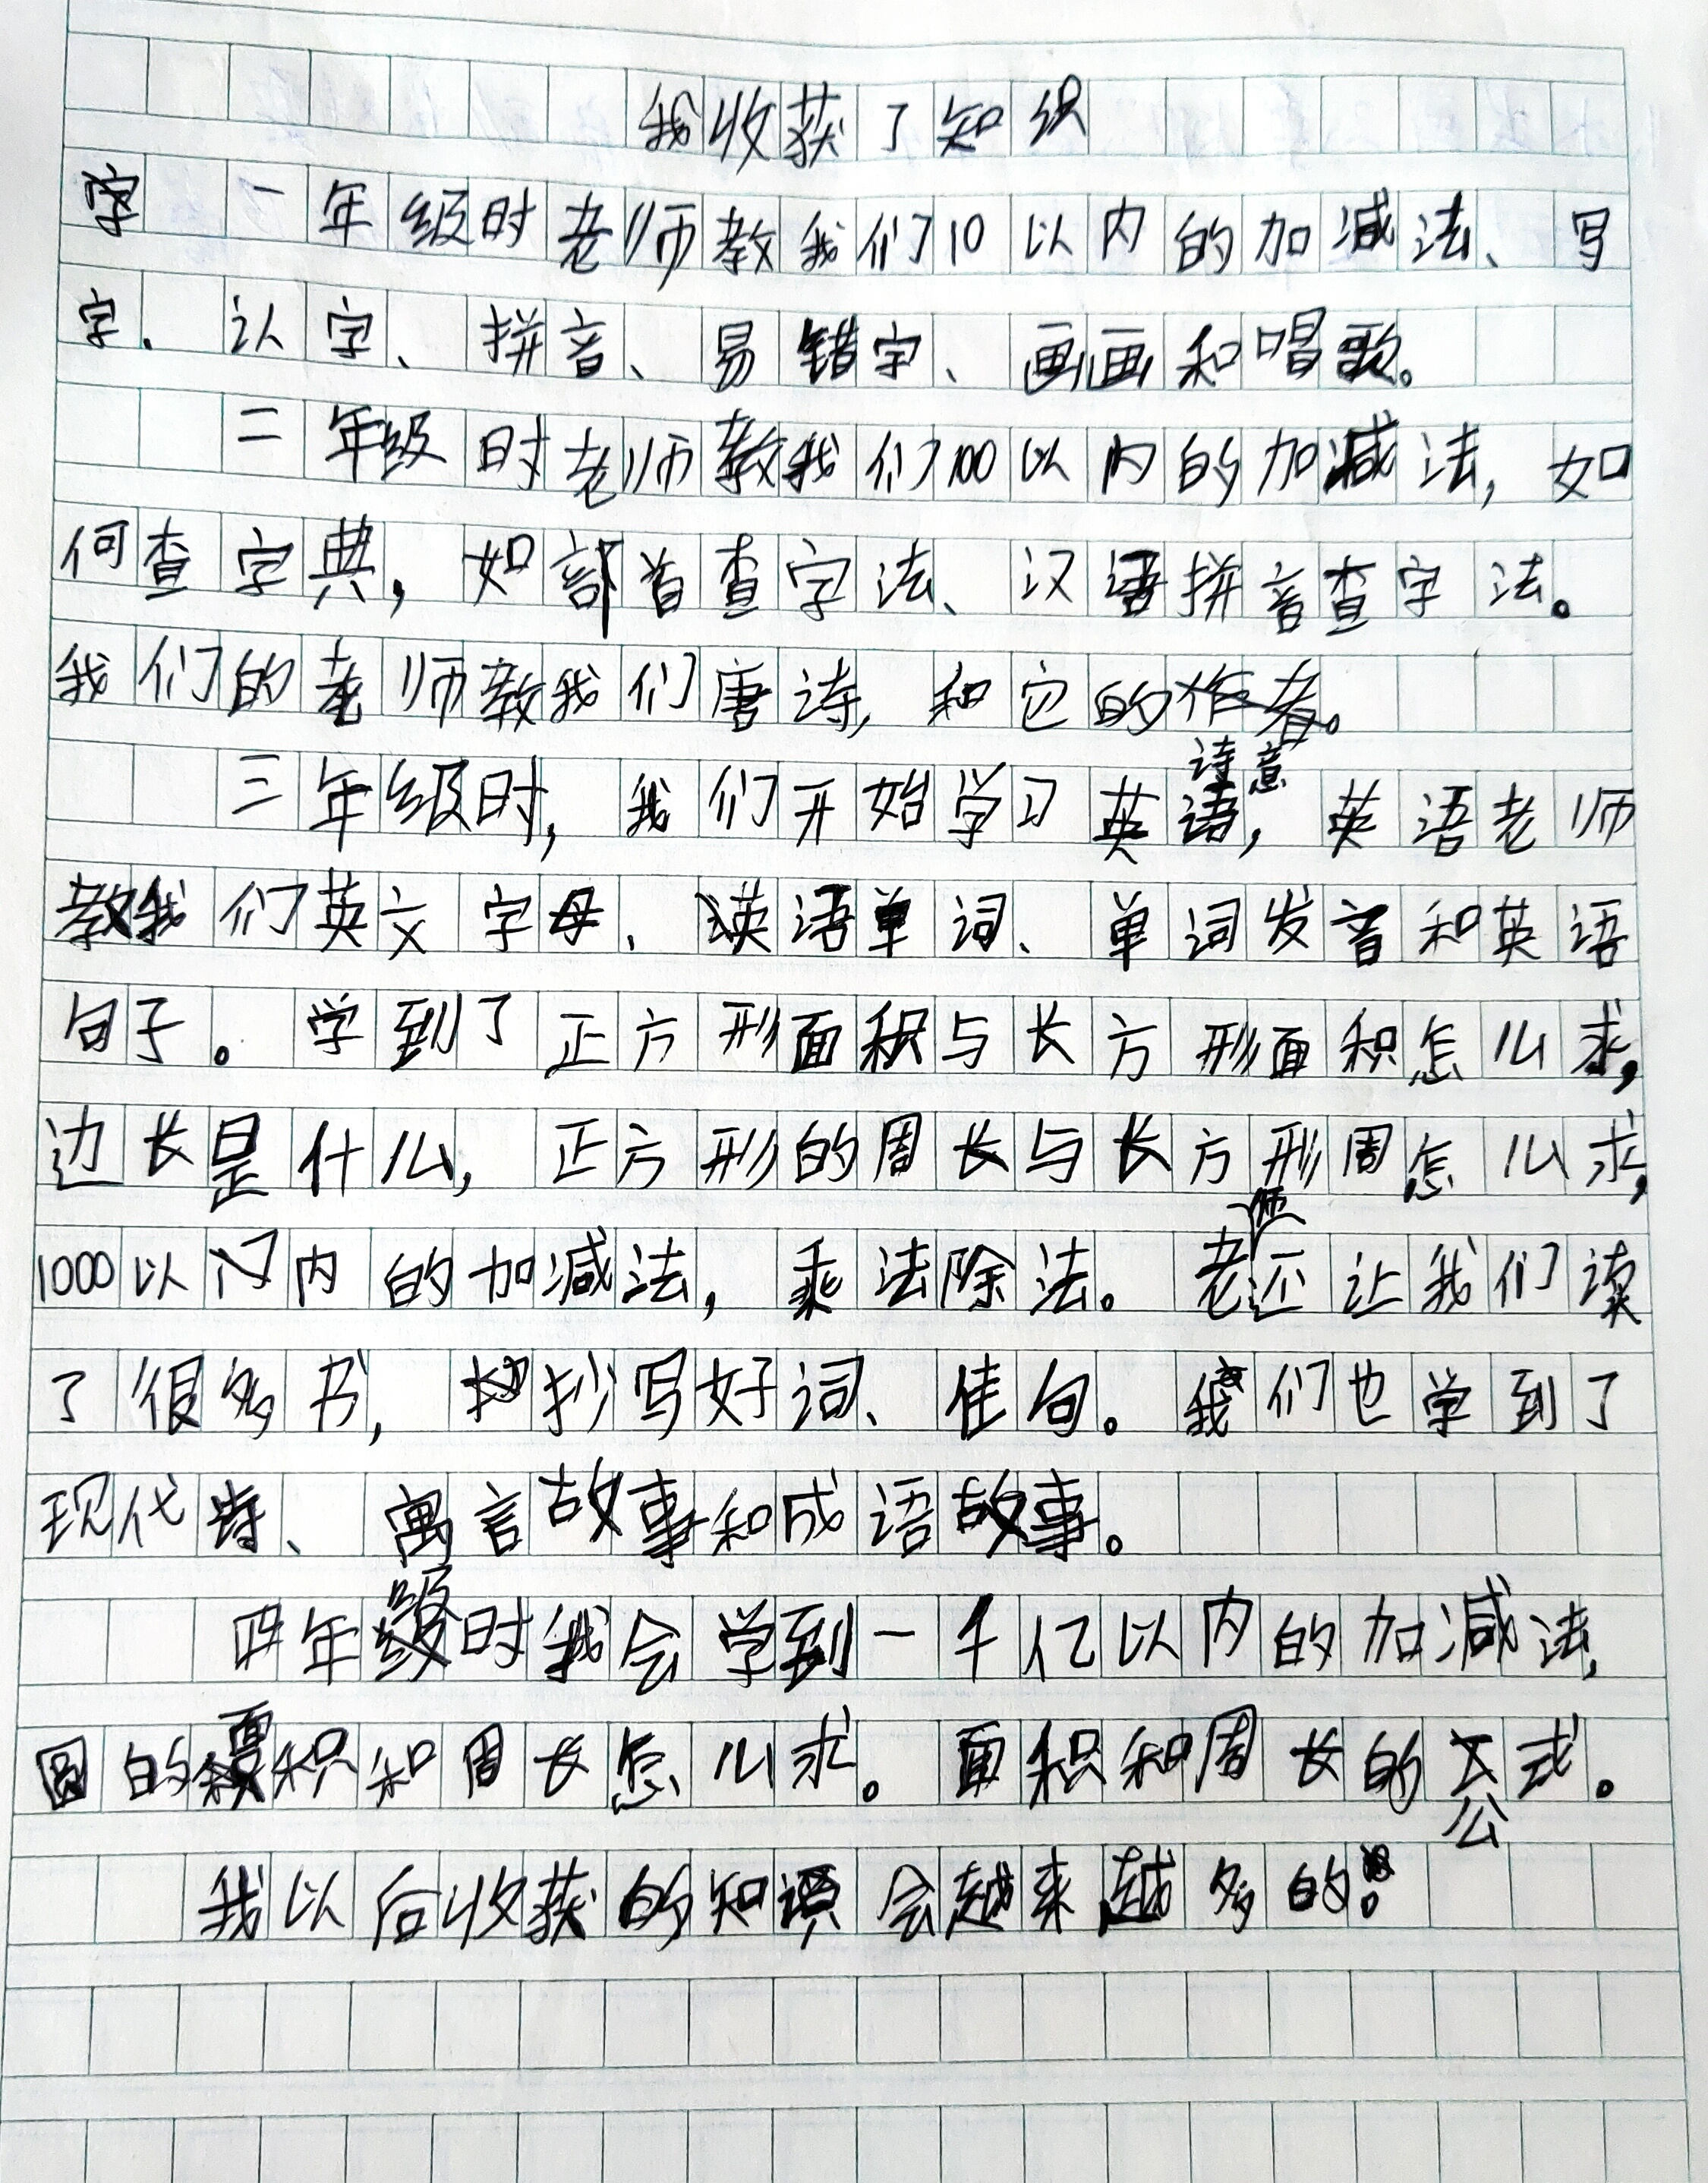 我收获了知识
一年级时老师教我们10以内的加减法、写
字、认字、拼音、易错字、画画和唱歌。
二年级时老师教我们100以内的加减法,如
何查字典,如部首查字法、汉语拼音查字法。
我们的老师教我们唐诗,和它的作者。
诗意
三年级时,我们开始学习英语,英语老师
教我们英文字母、英语单词、单词发音和英语
句子。学到了正方形面积与长方形面积怎么求,
边长是什么,正方形的周长与长方形周怎么求,
师
1000以内的加减法,乘法除法。老还让我们读
了很多书,抄写好词、佳句。我们也学到了
现代诗、寓言故事和成语故事。
四年级时我会学到一千亿以内的加减法,
圆的面积和周长怎么求。面积和周长的公式。
我以后收获的知识会越来越多的!